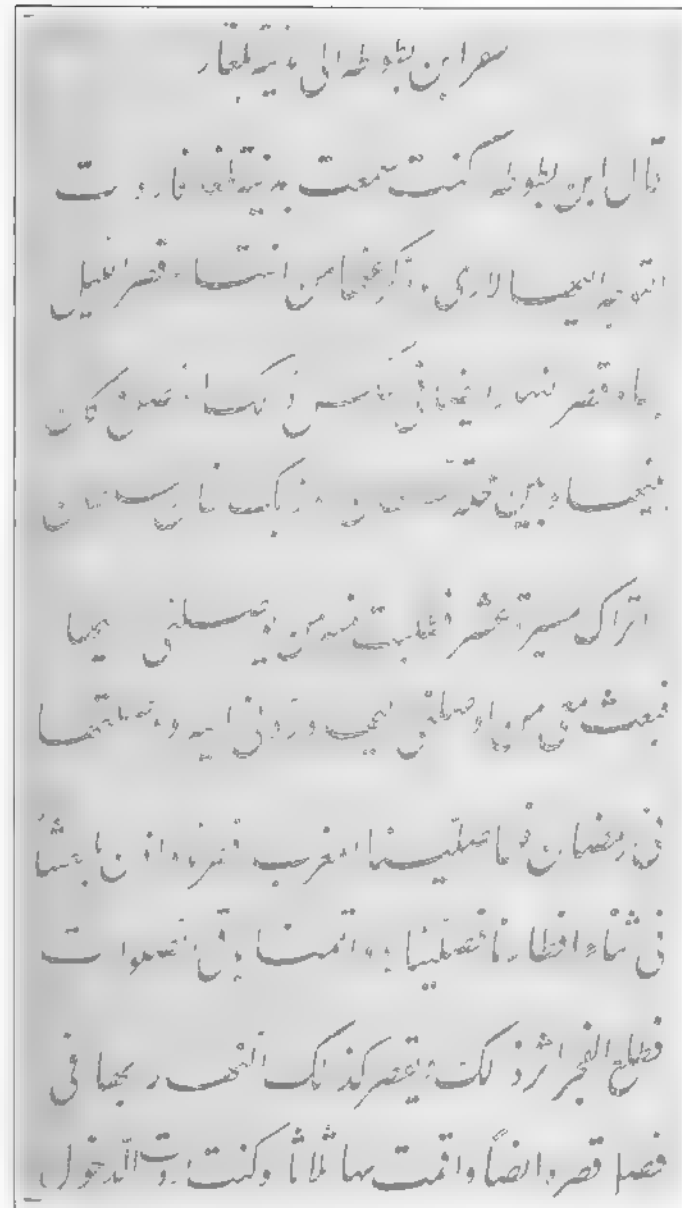 سفر ابن بطوطه الى مدينة بلغار
قال ابن بطوطه كنت سمعت بمدينة بلغار فاردت
التوجه اليها لارى ما ذكر عنها من انتهاء قصر الليل
بها وقصر النهار ايضا فى عكس ذلك الفصل وكان
بينها وبين محلة السلطان
اتراك مسيرة عشر فطلبت منه من يوصلنى اليها
فبعث معى من اوصلنى اليها وردنى اليه ووصلتها
فى رمضان فلما صلينا المغرب افطرنا واذن بالعشاء
فى اثناء افطارنا فصلينا
فطلع الفجر اثر ذلك ويقصر كذلك النهار بها فى
فصل قصره ايضاً واقمت بها ثلاثا وكنت اردت الدخول